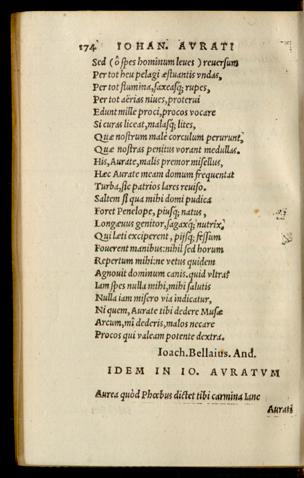 174 IOHAN. AVRATI
Sed (ô spes hominum leues) reuersum
Per tot heu pelagi æstuantis vndas,
Per tot flumina, saxeasq; rupes,
Per tot aërias niues, proterui
Edunt mille proci, procos vocare
Si curas liceat, malasq; lites,
Quæ nostrum malè corculum perurunt,
Quæ nostras penitus vorant medullas.
His, Aurate, malis premor misellus,
Hæc Aurate meam domum frequentat
Turba, sic patrios lares reuiso.
Saltem si qua mihi domi pudica
Foret Penelope, piusq; natus,
Longæuus genitor, sagaxq; nutrix,
Qui læti exciperent, pijsq; fessum
Fouerent manibus: nihil sed horum
Repertum mihi: ne vetus quidem
Agnouit dominum canis. quid vltra?
Iam spes nulla mihi, mihi salutis
Nulla iam misero via indicatur,
Ni quem, Aurate tibi dedere Musæ
Arcum, mî dederis, malos necare
Procos qui valeam potente dextra.
Ioach. Bellaius. And.
IDEM IN IO. AVRATVM
Aurea quòd Phœbus dictet tibi carmina Iane
Aurati